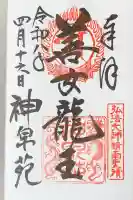 奉拝
弘法大師請雨霊場
善女龍王
令和
四月十六日
神泉苑